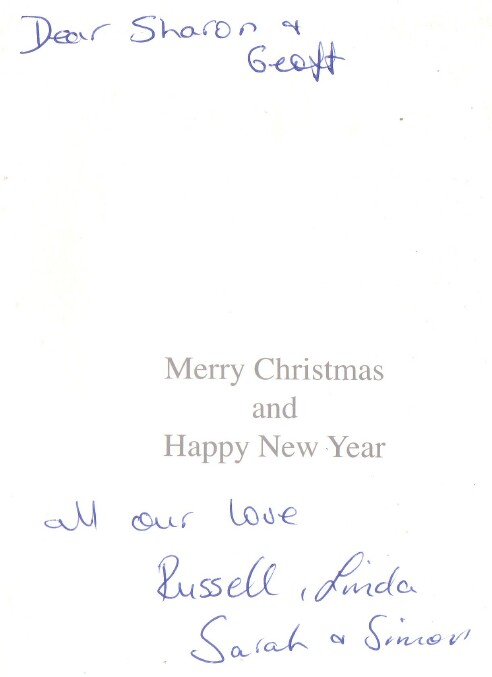 Dear Sharon &
Geoff
Merry Christmas
and
Happy New Year
all our love
Russell, Linda
Sarah & Simon